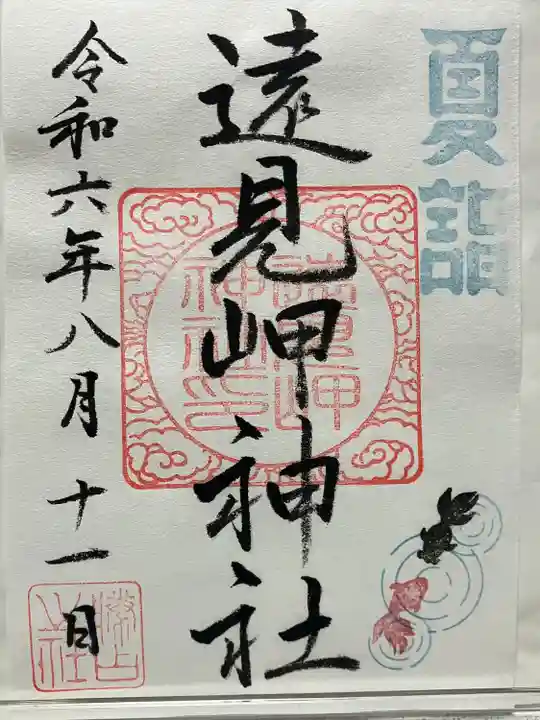 夏詣
遠見岬神社
遠見岬
神社印
令和六年八月十一日